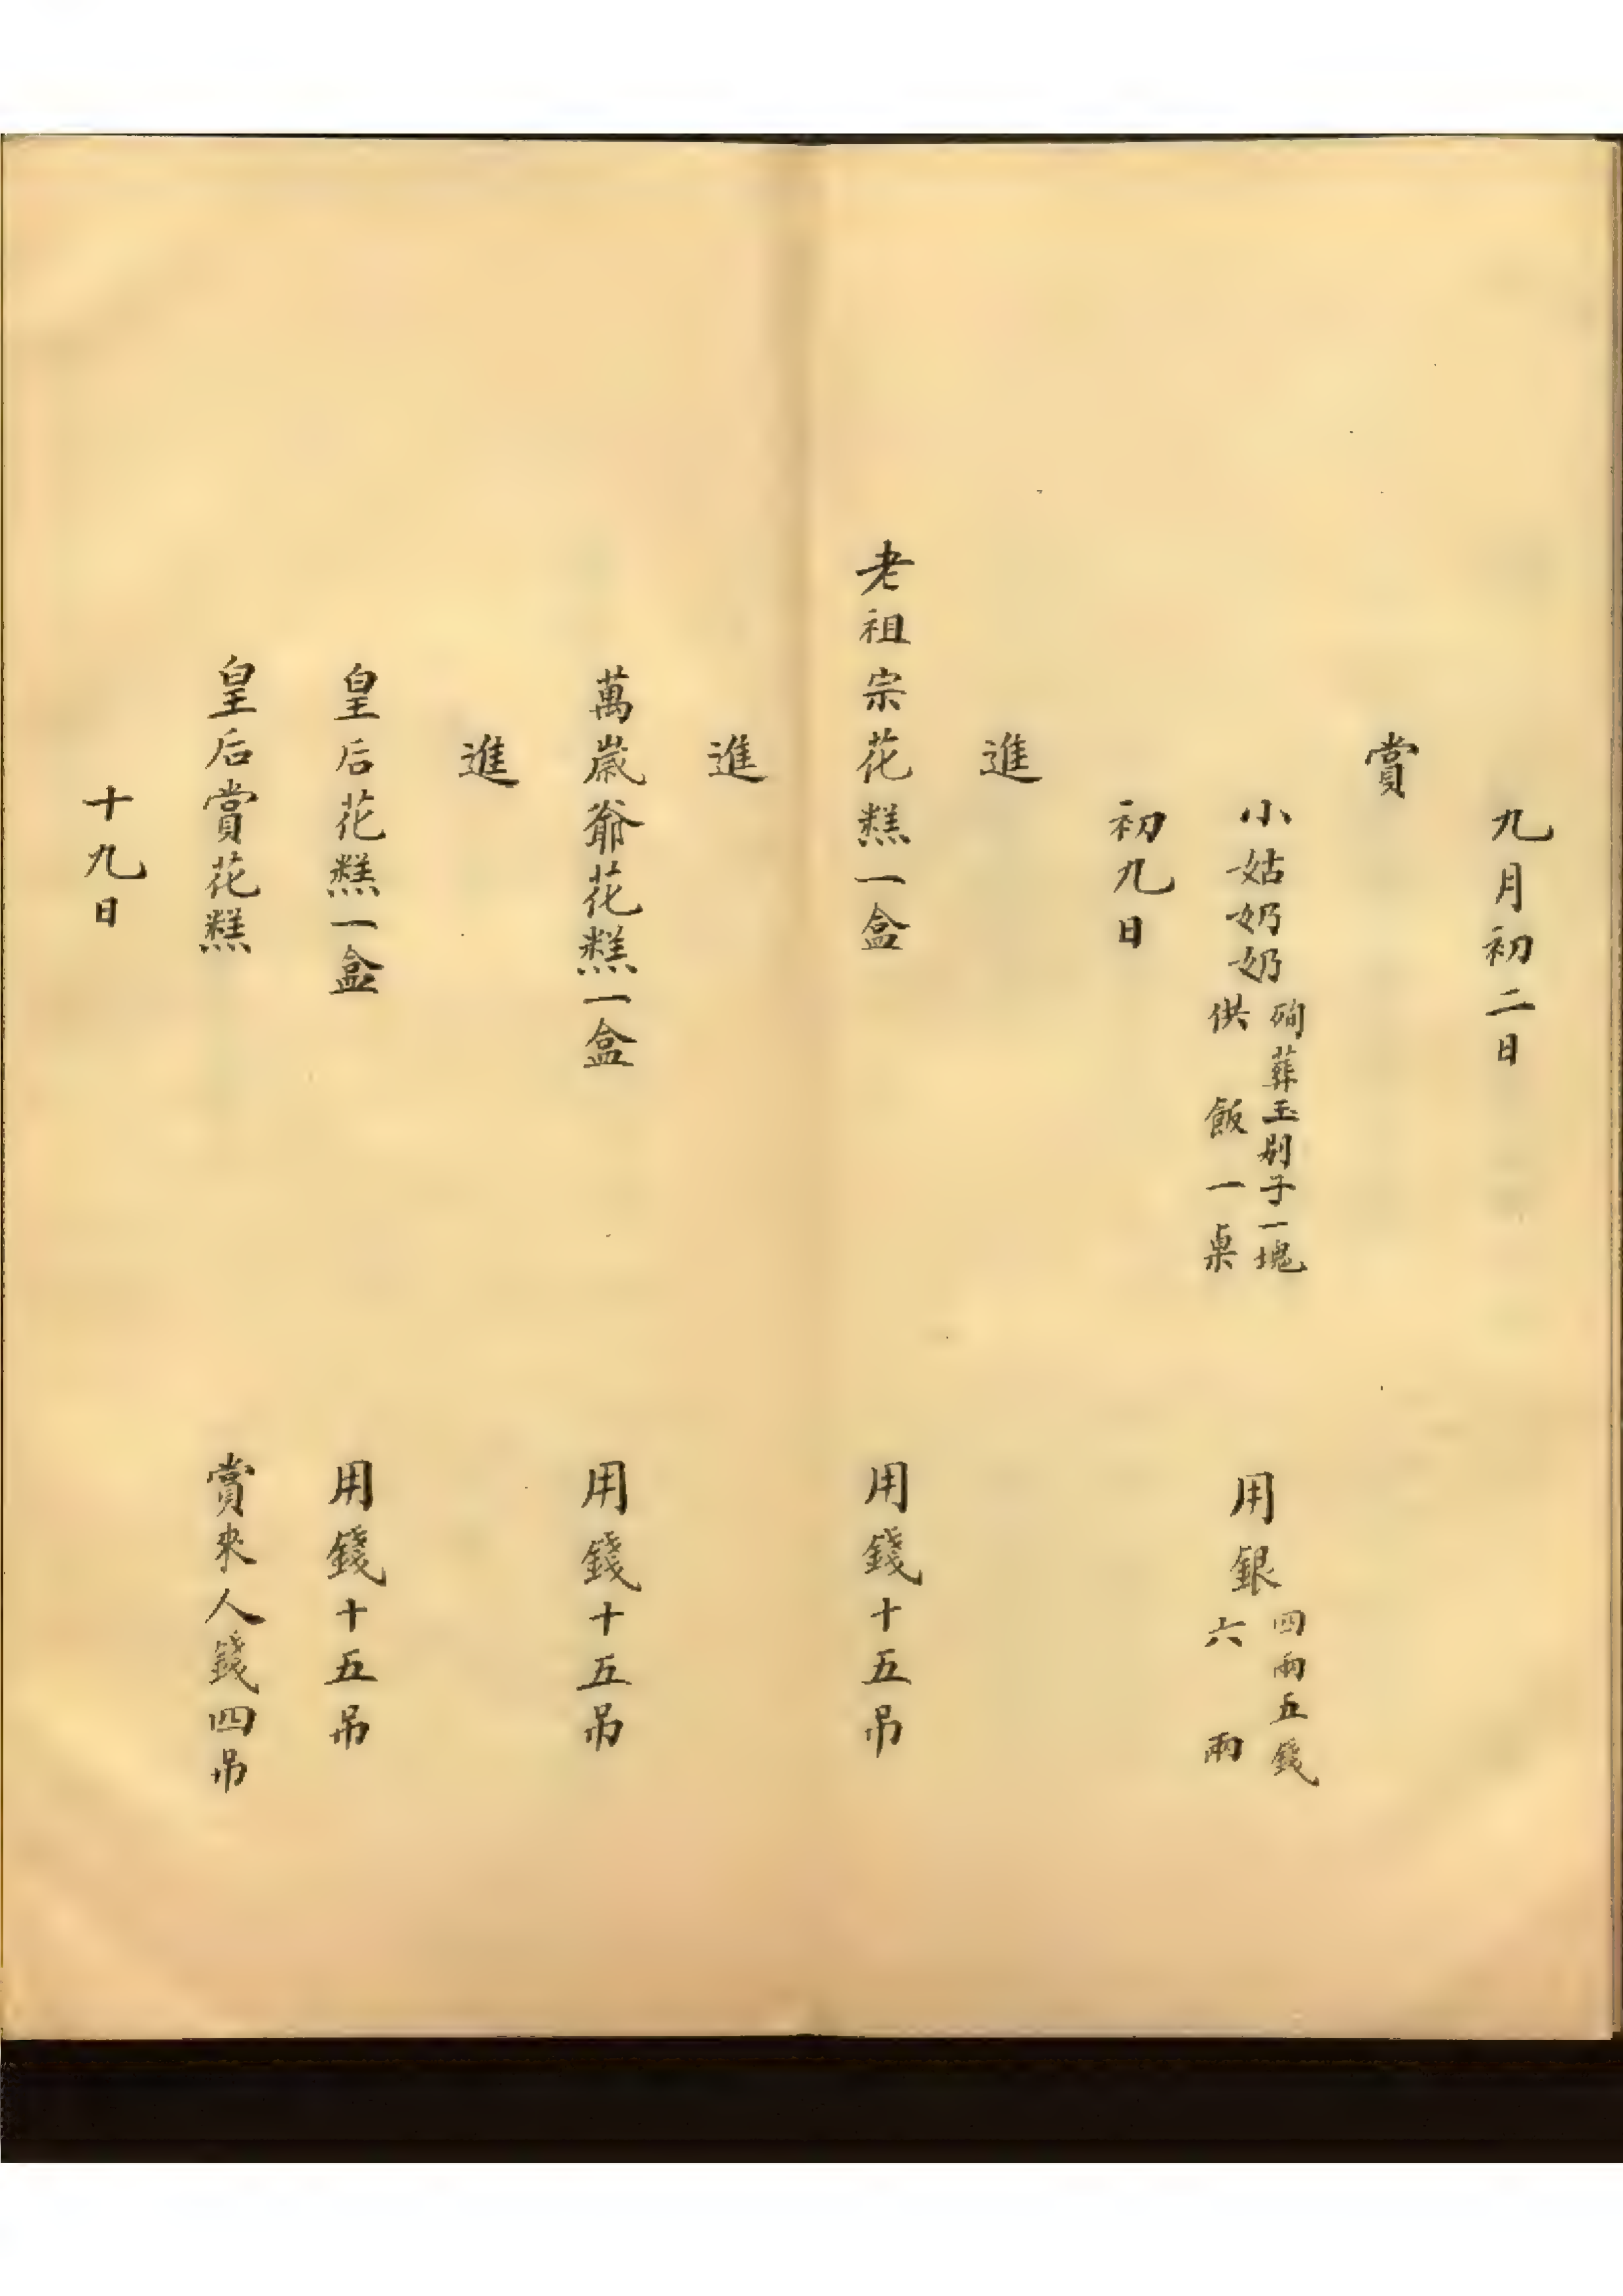 九月初二日
賞
小姑奶奶 殉葬玉別子一塊 供飯一桌 用銀 四兩五錢 六兩
初九日
進
老祖宗花糕一盒 用錢十五吊
進
萬歲爺花糕一盒 用錢十五吊
進
皇后花糕一盒 用錢十五吊
皇后賞花糕 賞來人錢四吊
十九日